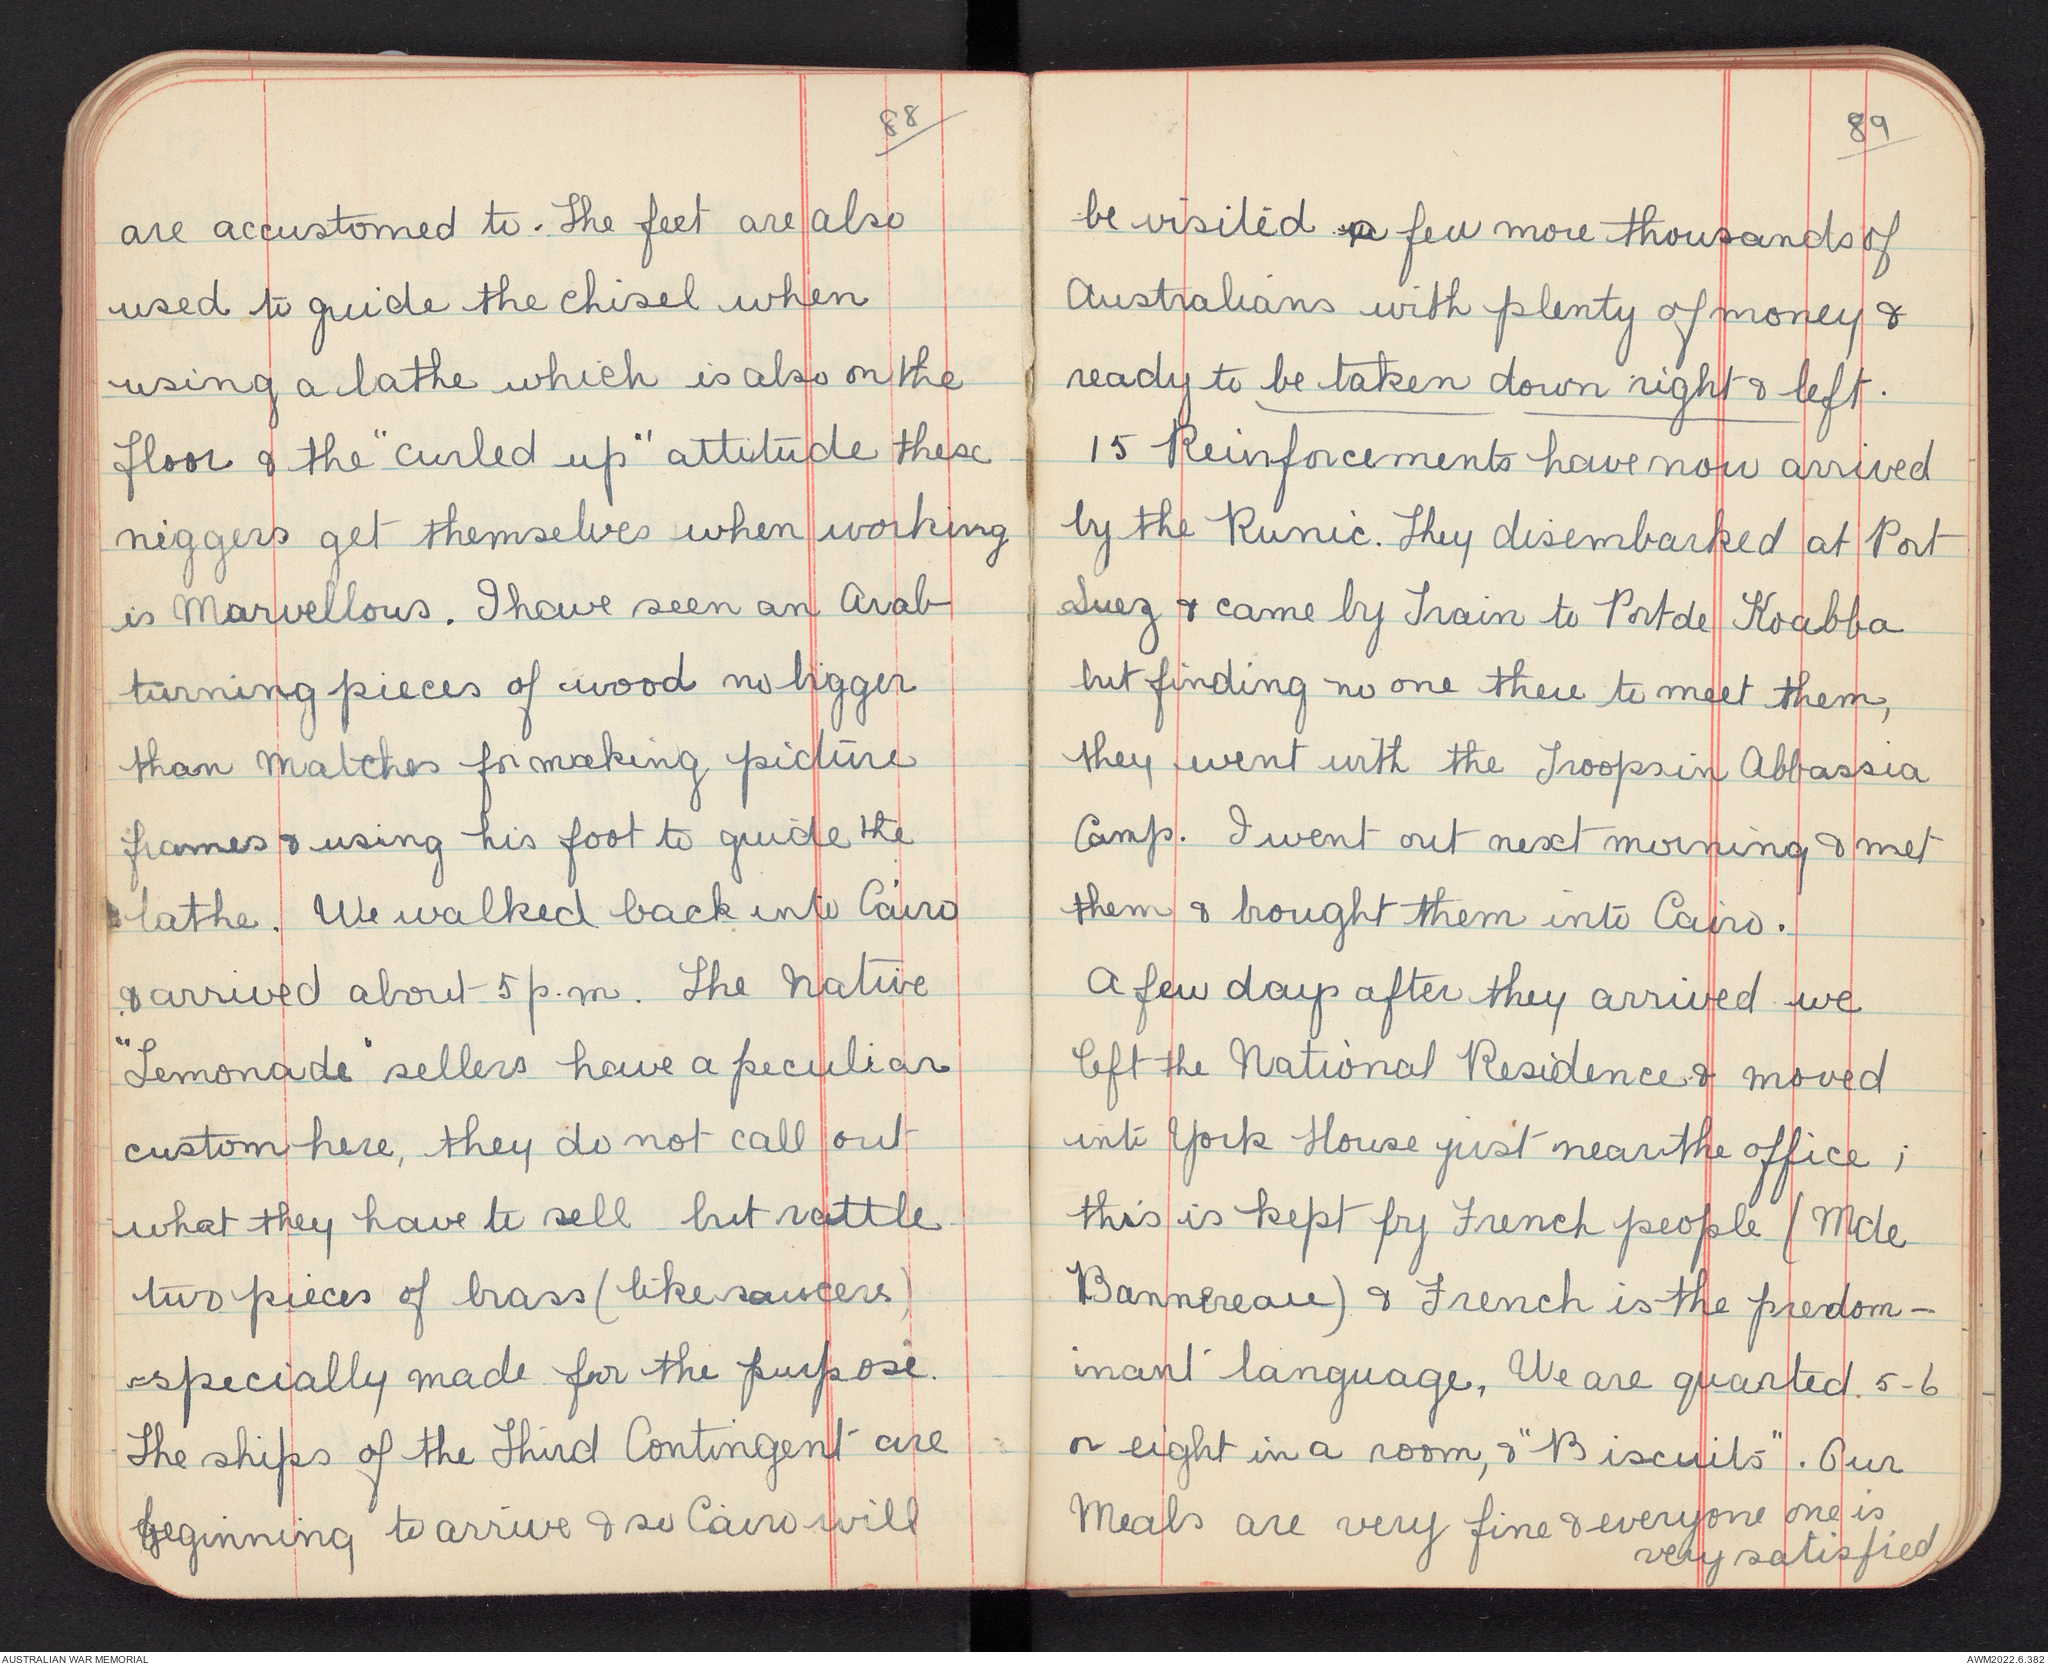 88
are accustomed to. The feet are also
used to guide the chisel when
using a lathe which is also on the
floor & the "curled up" attitude these
niggers get themselves when working
is Marvellous. I have seen an Arab
turning pieces of wood no bigger
than Matches for making picture
frames & using his foot to guide the
lathe. We walked back into Cairo
& arrived about 5 p.m. The Native
"Lemonade" sellers have a peculiar
custom here, they do not call out
what they have to sell but rattle
two pieces of brass (like saucers)
especially made for the purpose.
The ships of the Third Contingent are
beginning to arrive & so Cairo will
89
be visited a few more thousands of
Australians with plenty of money &
ready to be taken down right & left.
15 Reinforcements have now arrived
by the Runic. They disembarked at Port
Suez & came by Train to Port de Koabba
but finding no one there to meet them,
they went with the Troops in Abbassia
Camp. I went out next morning & met
them & brought them into Cairo.
A few days after they arrived we
left the National Residence & moved
into York House just near the office ;
this is kept by French people (Mde
Bannereau) & French is the predom-
inant language, We are quarted 5-6
or eight in a room, & "Biscuits". Our
Meals are very fine & everyone one is
very satisfied
AUSTRALIAN WAR MEMORIAL
AWM2022.6.382